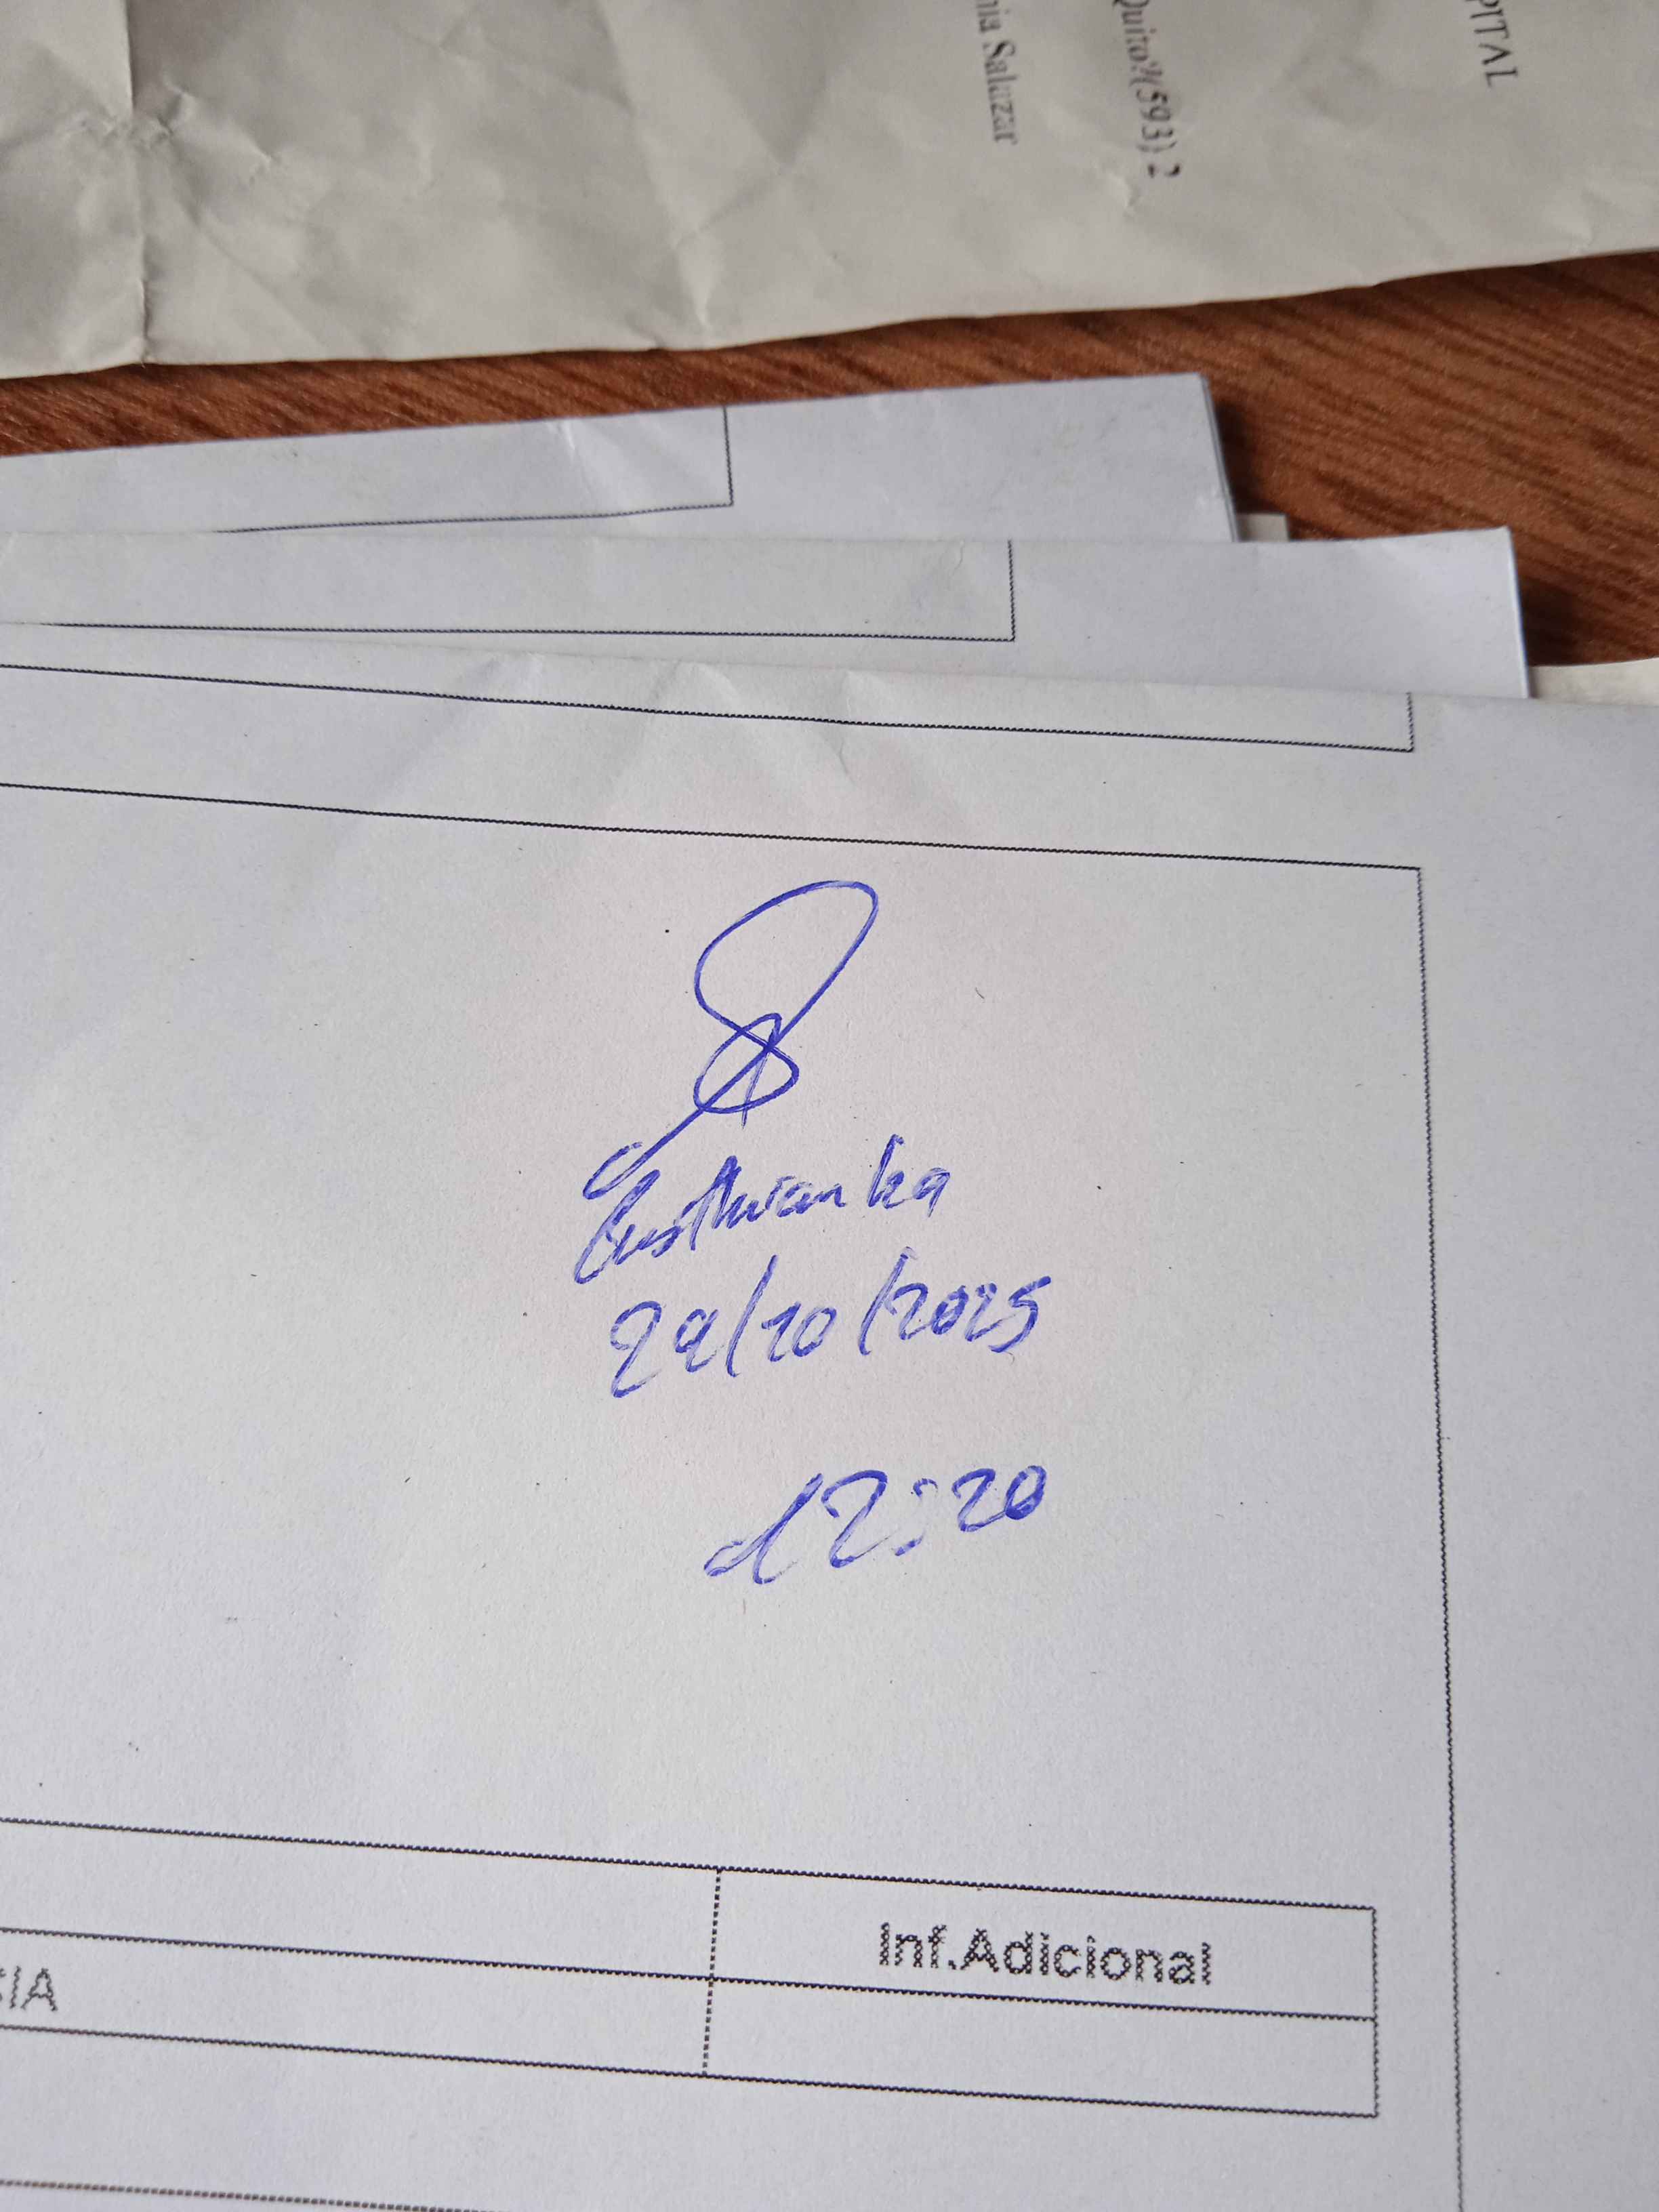 PITAL
Quito?(593) 2
nia Salazar
29/10/2025
12:20
Inf.Adicional
CIA